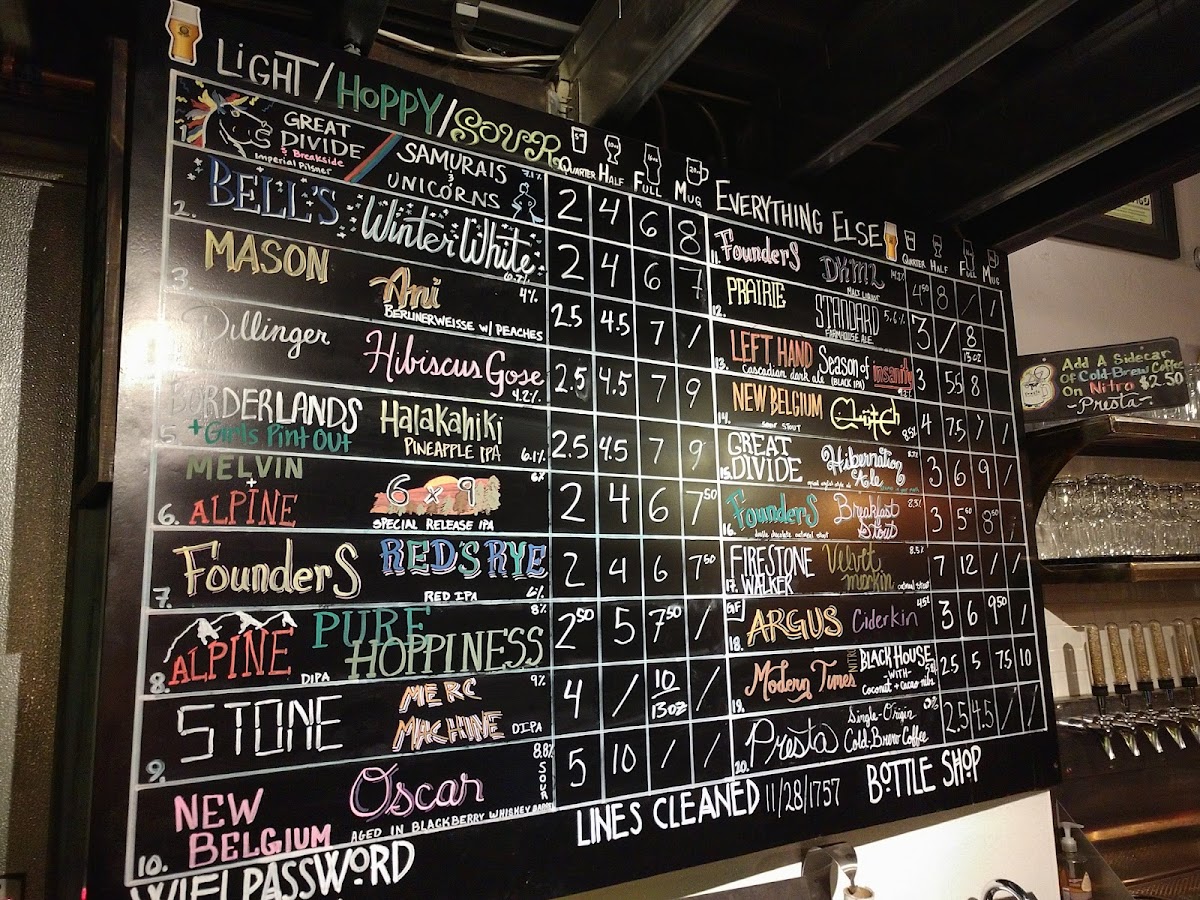 LIGHT/HOPPY/SOUR QUARTER HALF FULL MUG
1. GREAT DIVIDE & Breakside Imperial Pilsner SAMURAIS & UNICORNS 7.1% 2 4 6 8
2. BELL'S Winter White 2 4 6 7
3. MASON Ani BERLINERWEISSE W/ PEACHES 4% 2.5 4.5 7 /
Dillinger Hibiscus Gose 4.2% 2.5 4.5 7 9
5. BORDERLANDS + Girls Pint Out Halakahiki PINEAPPLE IPA 6.1% 2.5 4.5 7 9
6. MELVIN + ALPINE 6x9 SPECIAL RELEASE IPA 2 4 6 7.50
7. FounderS RED'S RYE RED IPA 2 4 6 7.50
8. ALPINE PURE HOPPINESS DIPA 8% 2.50 5 7.50 /
9. STONE MERC MACHINE DIPA 9% 4 / 10 13oz /
10. NEW BELGIUM Oscar AGED IN BLACKBERRY WHISKEY BARREL 8.8% SOUR 5 10 / /
EVERYTHING ELSE QUARTER HALF FULL MUG
11. FounderS DKML MALT LIQUOR 4.50 8 / /
12. PRAIRIE STANDARD FARMHOUSE ALE 5.6% 3 / 8 13oz
13. LEFT HAND Cascadian dark ale Season of insanity (BLACK IPA) 3 5.5 8
14. NEW BELGIUM Clutch SOUR STOUT 8.5% 4 7.5 7 /
15. GREAT DIVIDE Hibernation Ale 3 6 9 /
16. FounderS Breakfast Stout double chocolate oatmeal stout 8.3% 3 5.50 8.50 /
17. FIRESTONE WALKER Velvet merkin oatmeal stout 8.5% 7 12 / /
18. GF ARGUS Ciderkin 3 6 9.50 /
19. Modern Times NITRO BLACK HOUSE -WITH- Coconut + Cacao nibs 2.5 5 7.5 10
20. Presta Single-Origin Cold-Brew Coffee 0% 2.5 4.5 / /
LINES CLEANED 11/28/1757 BOTTLE SHOP
WIFI PASSWORD
Add A Sidecar
Of Cold-Brew Coffee
On Nitro $2.50
-Presta-